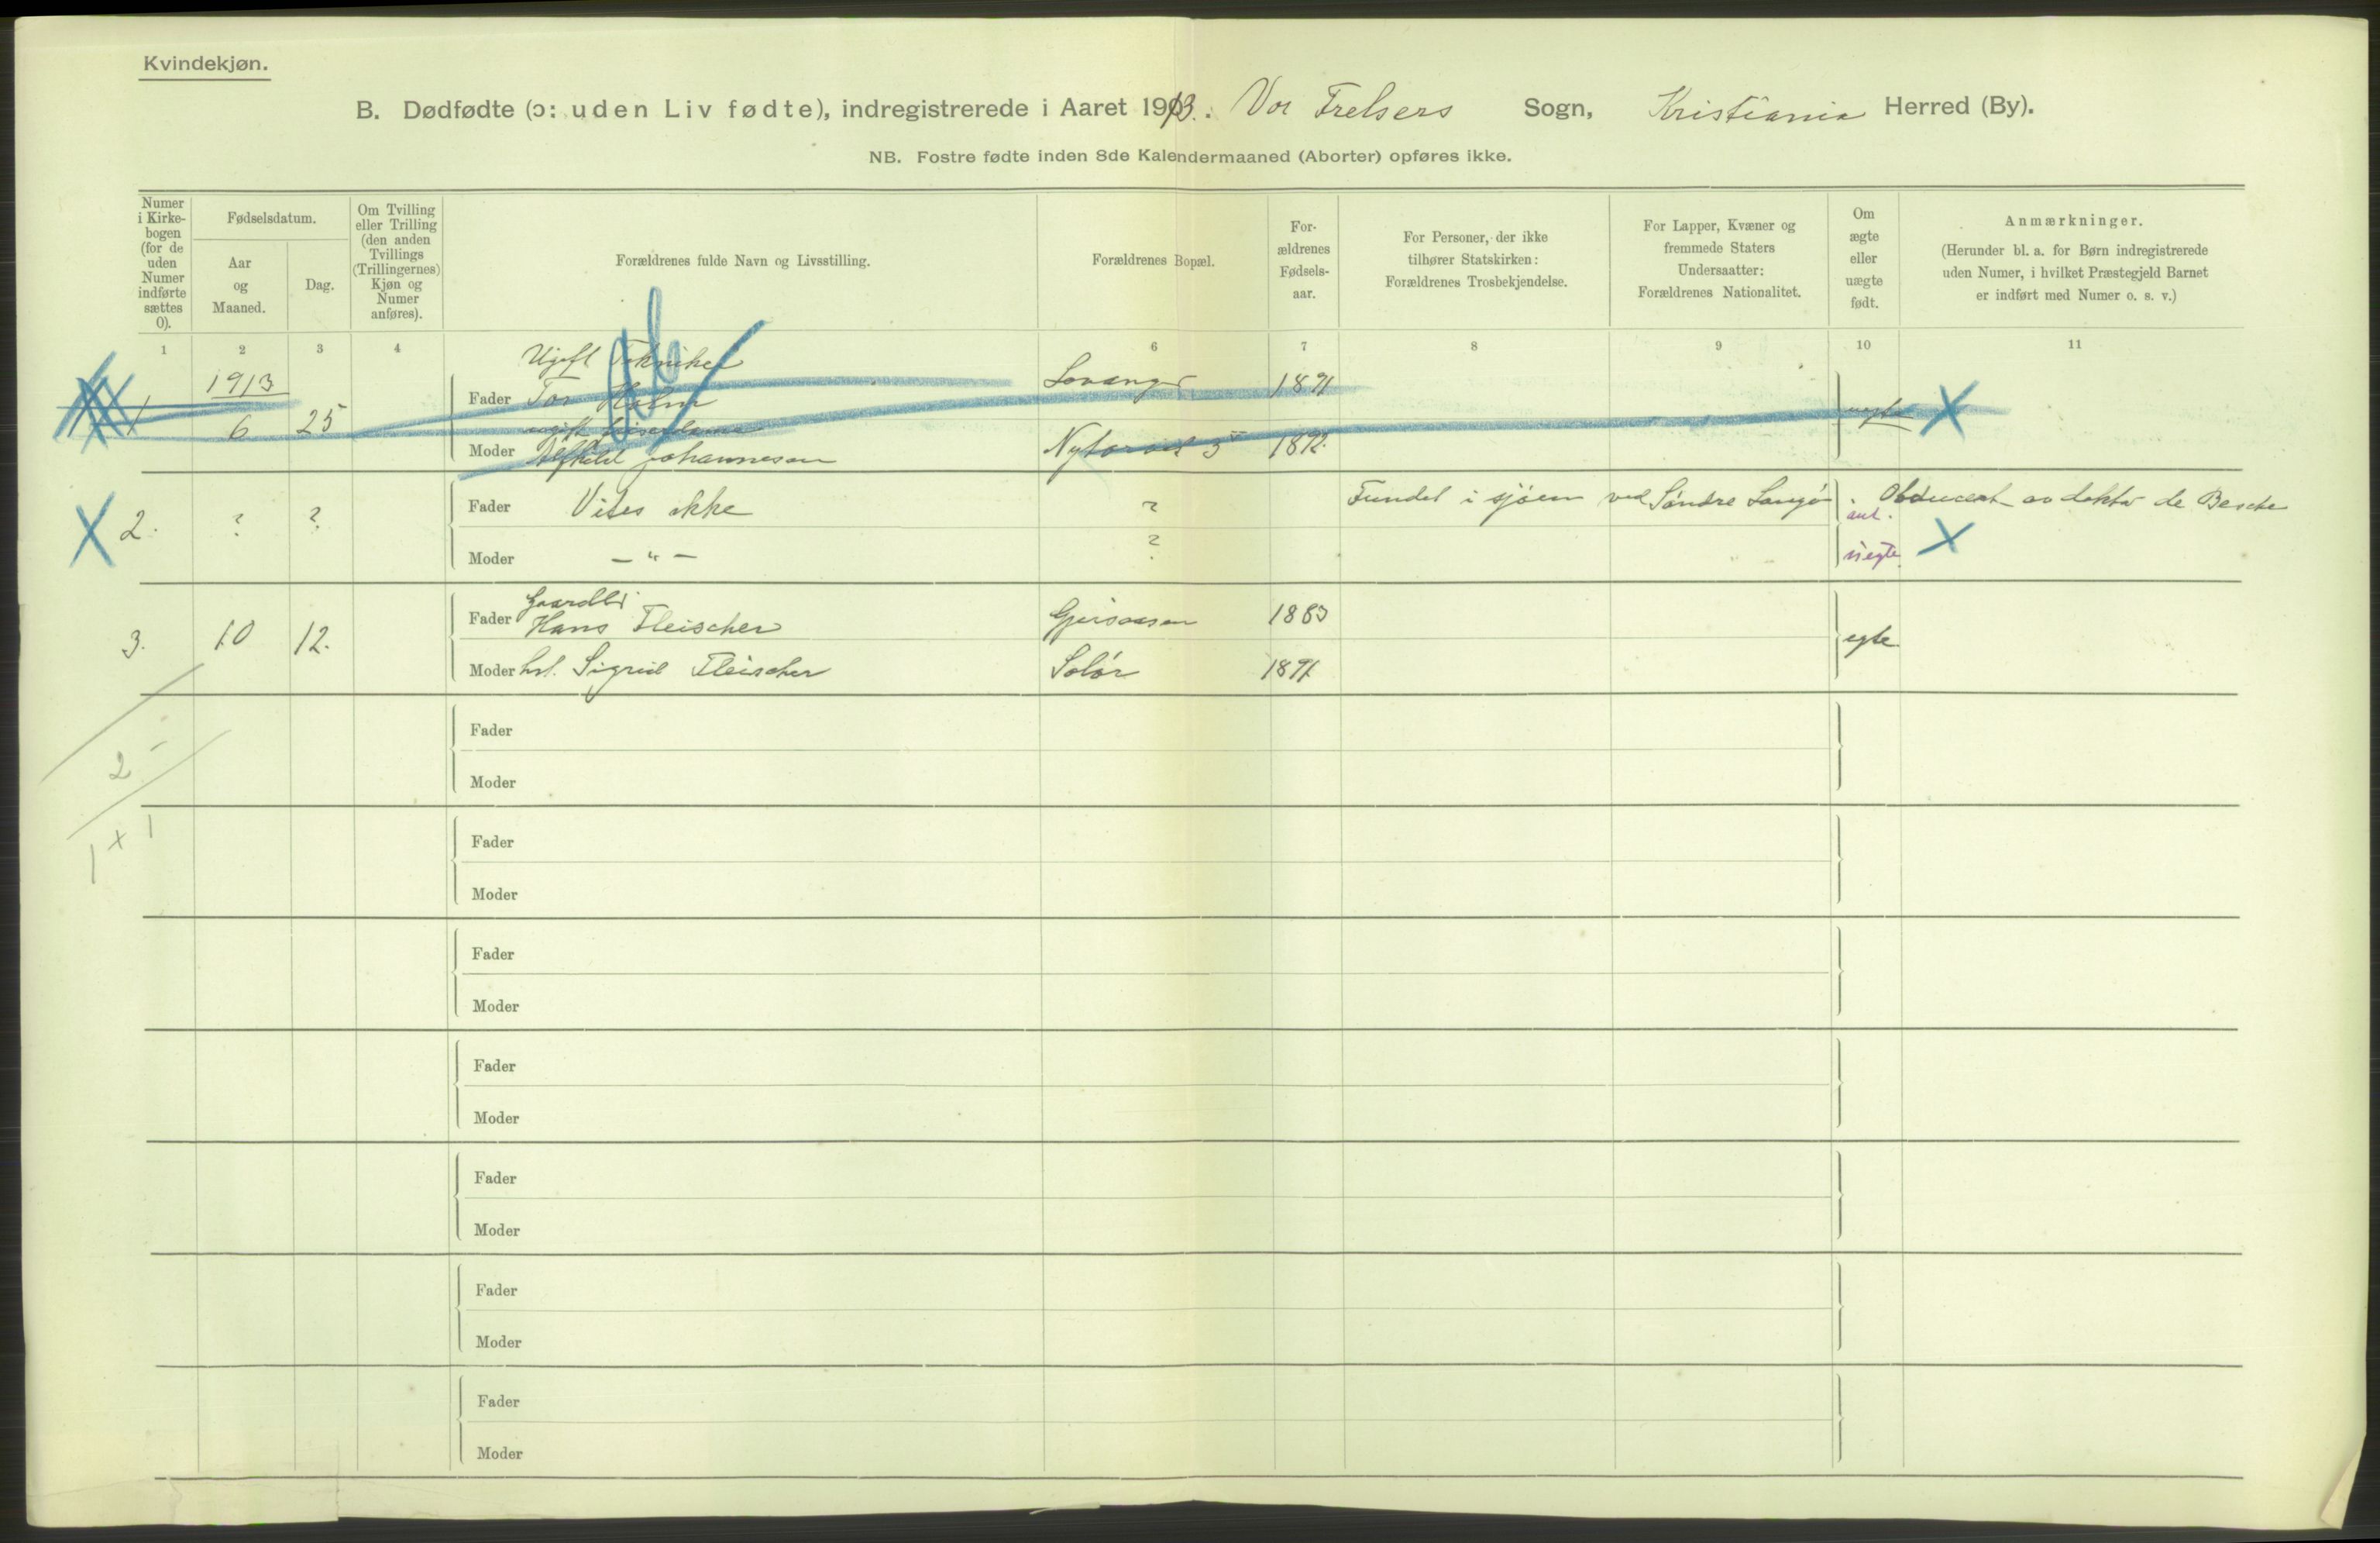 Kvindekjøn.
B. Dødfødte (ɔ: uden Liv fødte), indregistrerede i Aaret 1913.: Vor Frelsers Sogn, Kristiania Herred (By).
NB. Fostre fødte inden 8de Kalendermaaned (Aborter) opføres ikke.
Numer i Kirke- bogen (for de uden Numer indførte sættes 0).
Fødselsdatum.
Aar og Maaned.
Dag.
Om Tvilling eller Trilling (den anden Tvillings (Trillingernes) Kjøn og Numer anføres).
Forældrenes fulde Navn og Livsstilling.
Forældrenes Bopæl.
For- ældrenes Fødsels- aar.
For Personer, der ikke tilhører Statskirken: Forældrenes Trosbekjendelse.
For Lapper, Kvæner og fremmede Staters Undersaatter: Forældrenes Nationalitet.
Om ægte eller uægte født.
Anmærkninger.
(Herunder bl. a. for Børn indregistrerede uden Numer, i hvilket Præstegjeld Barnet er indført med Numer o. s. v.)
1 2 3 4 6 7 8 9 10 11
Ugift Tekniker
1913
Fader Tor Holm 1891
1 6 25 uegte X
ugift
Moder Alfhild Johannesen Nytorvet 3 1892
Fader Vites ikke ? Fundet i sjøen ved Søndre Langø. Obducert av doktor de Besche
X 2. ? ? ant. uegte X
Moder – " – ?
Gaardbr.
Fader Hans Fleischer Gjersaasen 1883
3. 10 12. egte
Moder hst. Sigrid Fleischer Solør 1891
2 -
1 x 1
Fader
Moder
Fader
Moder
Fader
Moder
Fader
Moder
Fader
Moder
Fader
Moder
Fader
Moder